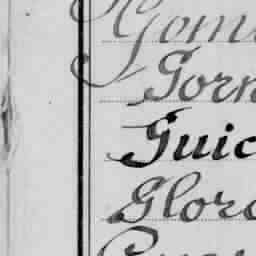 Gom
Gorn
Guic
Glor